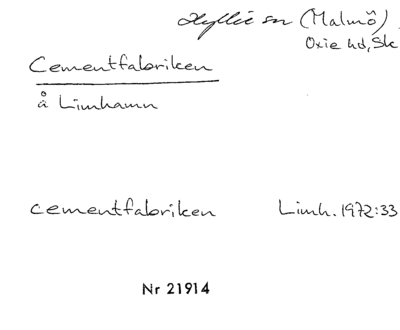 Hyllie sn (Malmö)
Oxie hd, Sk
Cementfabriken
å Limhamn
cementfabriken Limh. 1972:33
Nr 21914